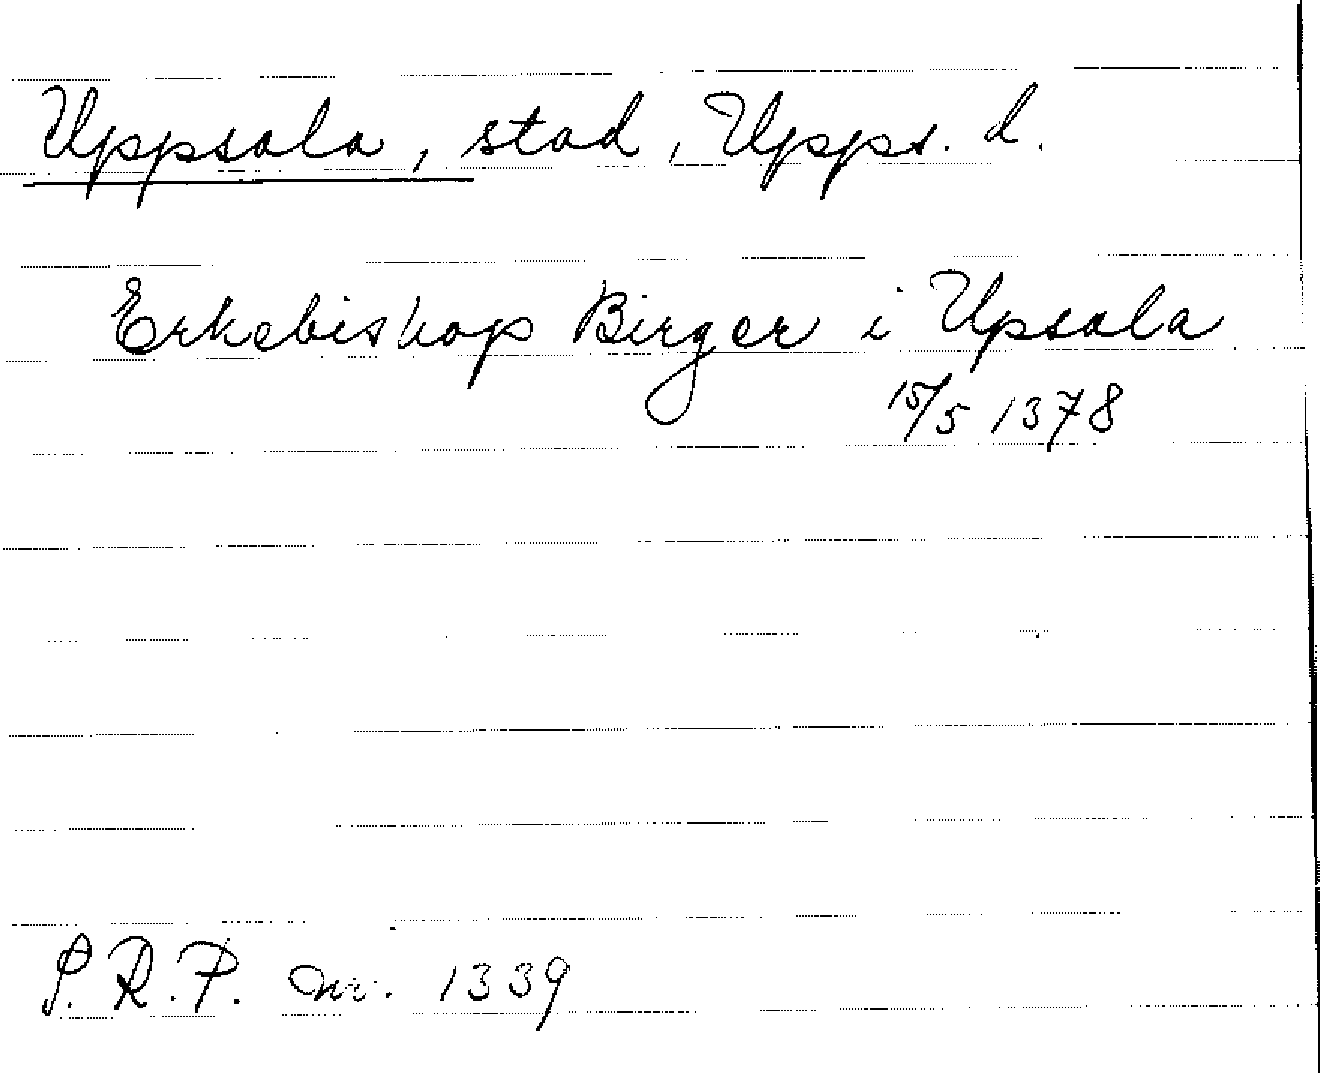 Uppsala, stad, Upps. l.
Erkebiskop Birger i Upsala
15/5 1378
S.R.P. nr. 1339